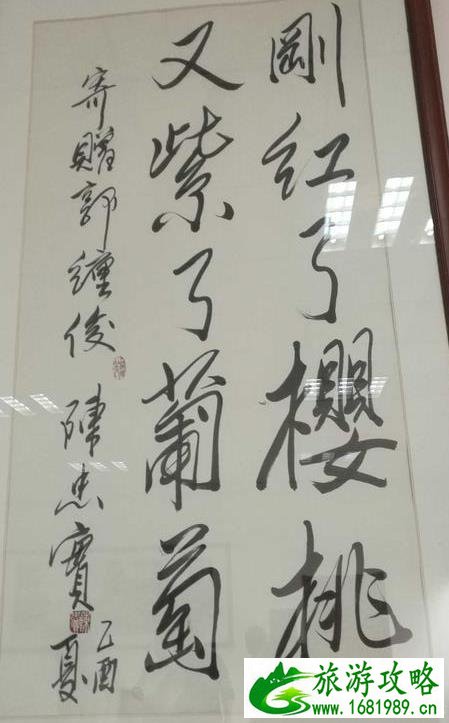 剛紅了櫻桃
又紫了葡萄
寄贈郭 俊 陳忠實
乙酉夏
旅游攻略
www.1681989.cn